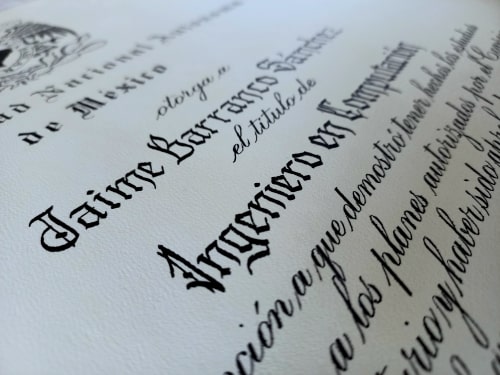 ad Nacional Autónoma
de México
otorga a
Jaime Barranco Sánchez
el título de
Ingeniero en Computación
ción a que demostró tener hechos los estudios
a los planes autorizados por el
rio y haber sido